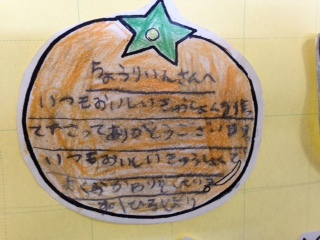 ちょうりいんさんへ
いつもおいしいきゅうしょくを
てすごってありがとうございます
いつもおいしいきゅうしょくで
よくおかわりをしている
ひろしより